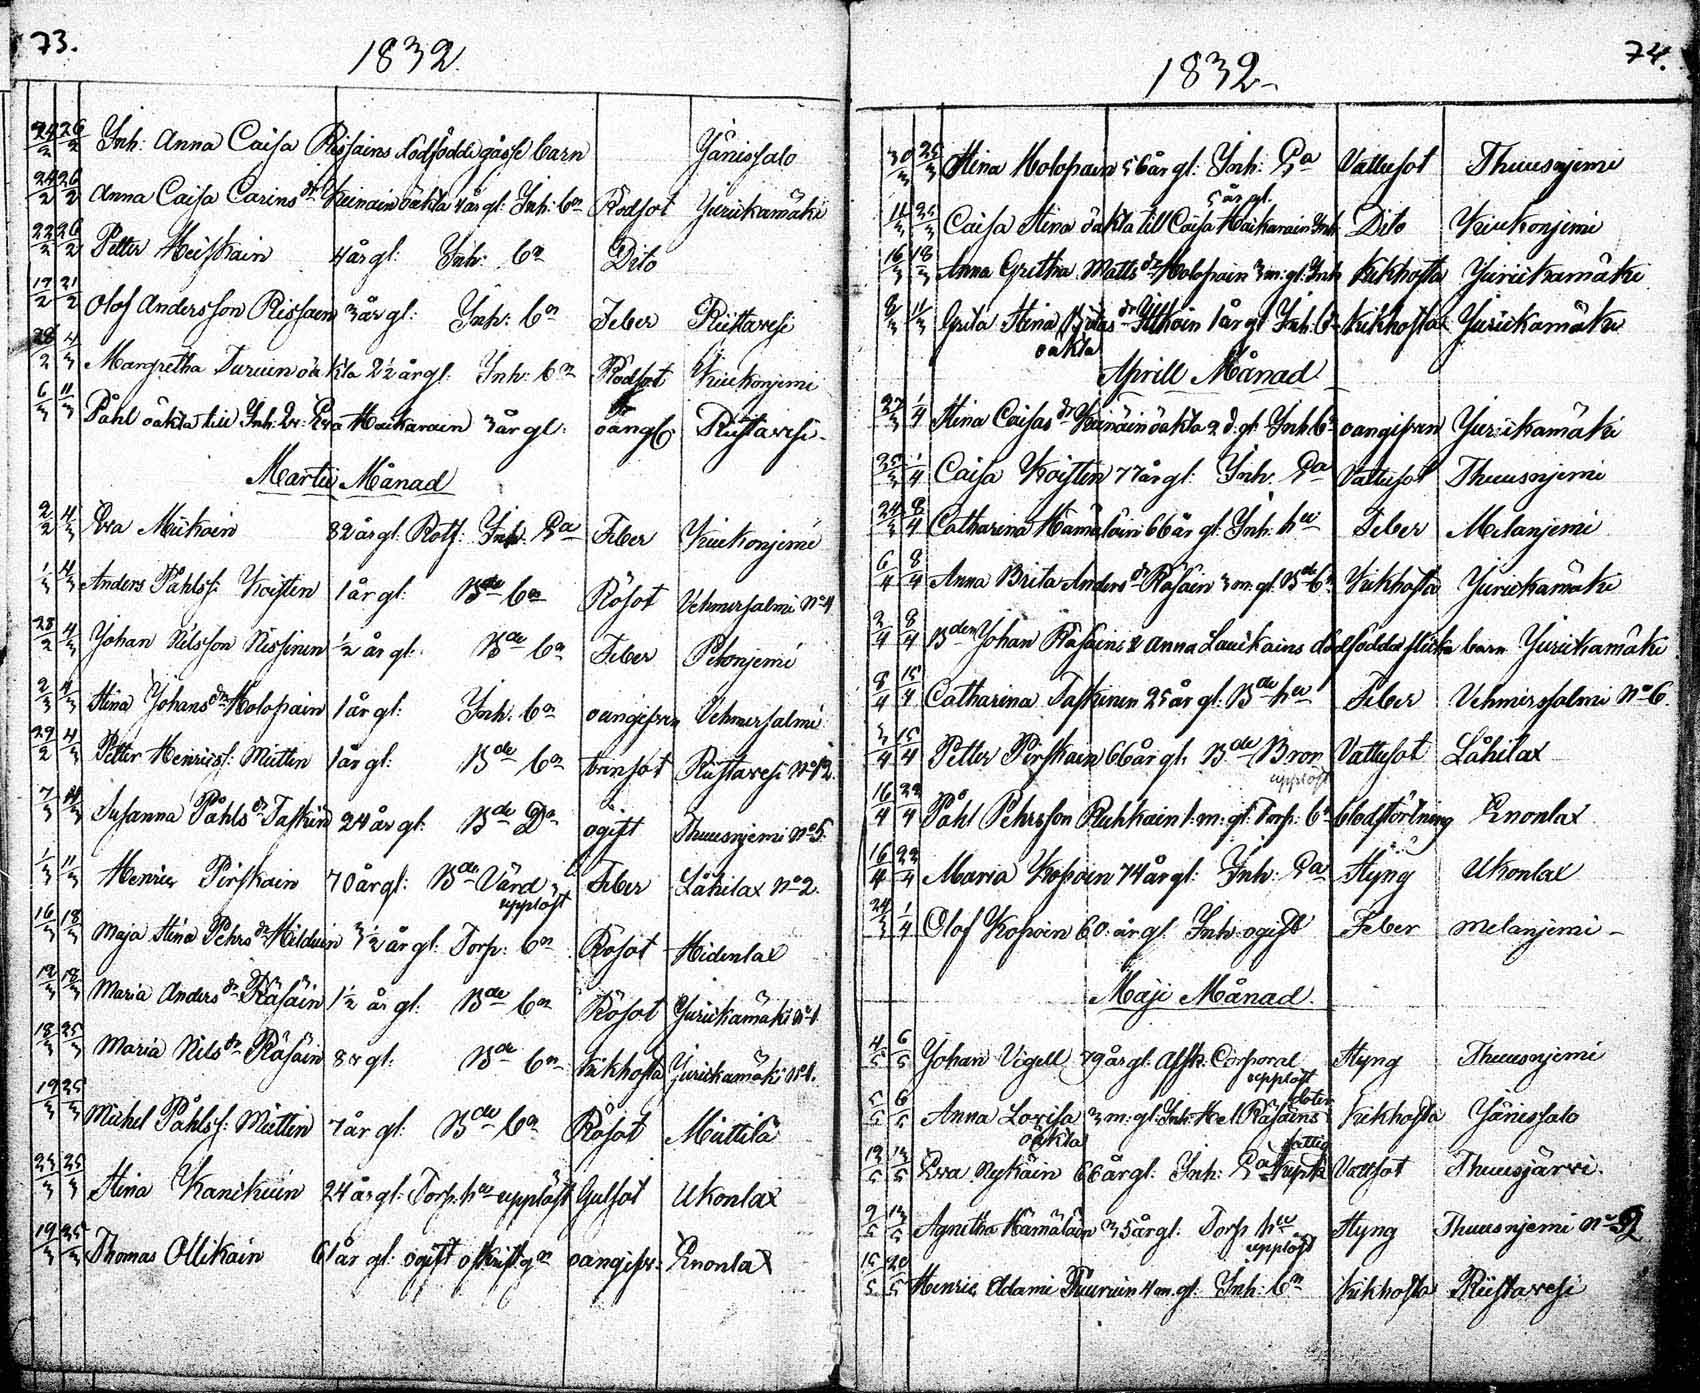 73.
1832.
24/2 26/2 Inh: Anna Caisa Rissains dödfödde gåsse barn Jänissalo
24/2 26/2 Anna Caisa Carins dr Keinäin oäkta 4 år gl: Inh: bn Rödsot Jurickamäki
22/2 26/2 Petter Heiskain 4 år gl: Inh: bn Dito
17/2 21/2 Olof Andersson Rissain 3 år gl: Inh: bn Feber Riistavesi
28/2 4/3 Margretha Turuin oäkta 2½ år gl: Inh: bn Rödsot Kiukonjemi
6/3 11/3 Påhl oäkta till Inh: Eva Haikarain 3 år gl: oångif: Riistavesi
Martii Månad
2/2 4/3 Eva Miikain 82 år gl: Rotf: Inh: Ea Feber Kiukonjemi
1/3 4/3 Anders Påhlss: Koistin 1 år gl: Bde bn Rösot Vehmersalmi No 4
28/2 4/3 Johan Nilsson Nissinen ½ år gl: Bde bn Feber Pelonjemi
2/3 4/3 Stina Johans dr Holopain 1 år gl: Inh: bn oangifven Vehmersalmi
29/2 4/3 Petter Henrics: Miettin 1 år gl: Bde bn brinsot Riistavesi No 12
7/3 11/3 Susanna Påhls dr Taskin 24 år gl: Bde Da ogift Thuusnjemi No 5
1/3 11/3 Henric Pirskain 70 år gl: Bde Värd Feber Låhilax No 2.
upplöst
16/3 18/3 Maja Stina Pehrs dr Hilduin 3½ år gl: Torp: bn Rösot Hidenlax
12/3 18/3 Maria Anders dr Räsäin 1½ år gl: Bde bn Rösot Jurickamäki No 1
18/3 25/3 Maria Nils dr Räsäin 8 år gl: Bde bn Kikhosta Jurickamäki No 1.
19/3 25/3 Michel Påhlss: Miettin 7 år gl: Bde bn Rösot Miettilä
23/3 25/3 Stina Kanikuin 24 år gl: Torp: hu upplöst Gulsot Ukonlax
19/3 25/3 Thomas Ollikain 61 år gl: ogift oangifv: Enonlax
74.
1832
30/3 25/3 Stina Holopain 56 år gl: Inh: Ea Vattusot Thuusnjemi
5 år gl:
11/3 25/3 Caisa Stina oäkta till Caisa Haikarain Inh: Dito Kiukonjemi
16/3 18/3 Anna Gretha Matts dr Holopain 3 m: gl: Inh Kikhosta Jurickamäki
8/3 11/3 Greta Stina dr Ultkain 1 år gl Inh: bn Kikhosta Jurickamäki
oäkta
Aprill Månad
27/3 1/4 Stina Caisas dr Keinäin oäkta 2 d: gl: Inh: bn oangifven Jurickamäki
25/3 1/4 Caisa Koistin 77 år gl: Inh: Ea Vattusot Thuusnjemi
24/3 8/4 Catharina Hämäläin 66 år gl: Inh: hu Feber Melanjemi
6/4 8/4 Anna Brita Anders dr Räsäin 3 m: gl: Bde bn Kikhosta Jurickamäki
3/4 8/4 Bden Johan Räsäins & Anna Lauikains dödfödda flicke barn Jurickamäki
8/4 15/4 Catharina Taskinen 25 år gl: Bde hu Feber Vehmerssalmi No 6.
3/4 15/4 Petter Pirskain 66 år gl: Bde Bror Vattusot Låhilax
upplöst
16/4 22/4 Påhl Pehrsson Ruhkain 1: m: gl: Torp: bn blodstörtning Enonlax
16/4 22/4 Maria Kopoin 74 år gl: Inh: Ea Styng Ukonlax
24/3 1/4 Olof Kopoin 60: år gl: Inh: ogift Feber Melanjemi
Maji Månad
4/5 6/5 Johan Vigell 79 år gl: Afsk: Corporal Styng Thuusnjemi
upplöst
doter
5/5 6/5 Anna Lovisa 3 m: gl: Inh: Hel Räsäins Kikhosta Jänissalo
oäkta
fattig
12/5 13/5 Eva Nykäin 66 år gl: Inh: Ea Vatlsot Thuusjärvi
9/5 13/5 Agnetha Hämäläin 35 år gl: Torp hu Styng Thuusnjemi No 2
upplöst
15/5 20/5 Henric Adami Tuuruin 4 m. gl: Inh: bn Kikhosta Riistavesi